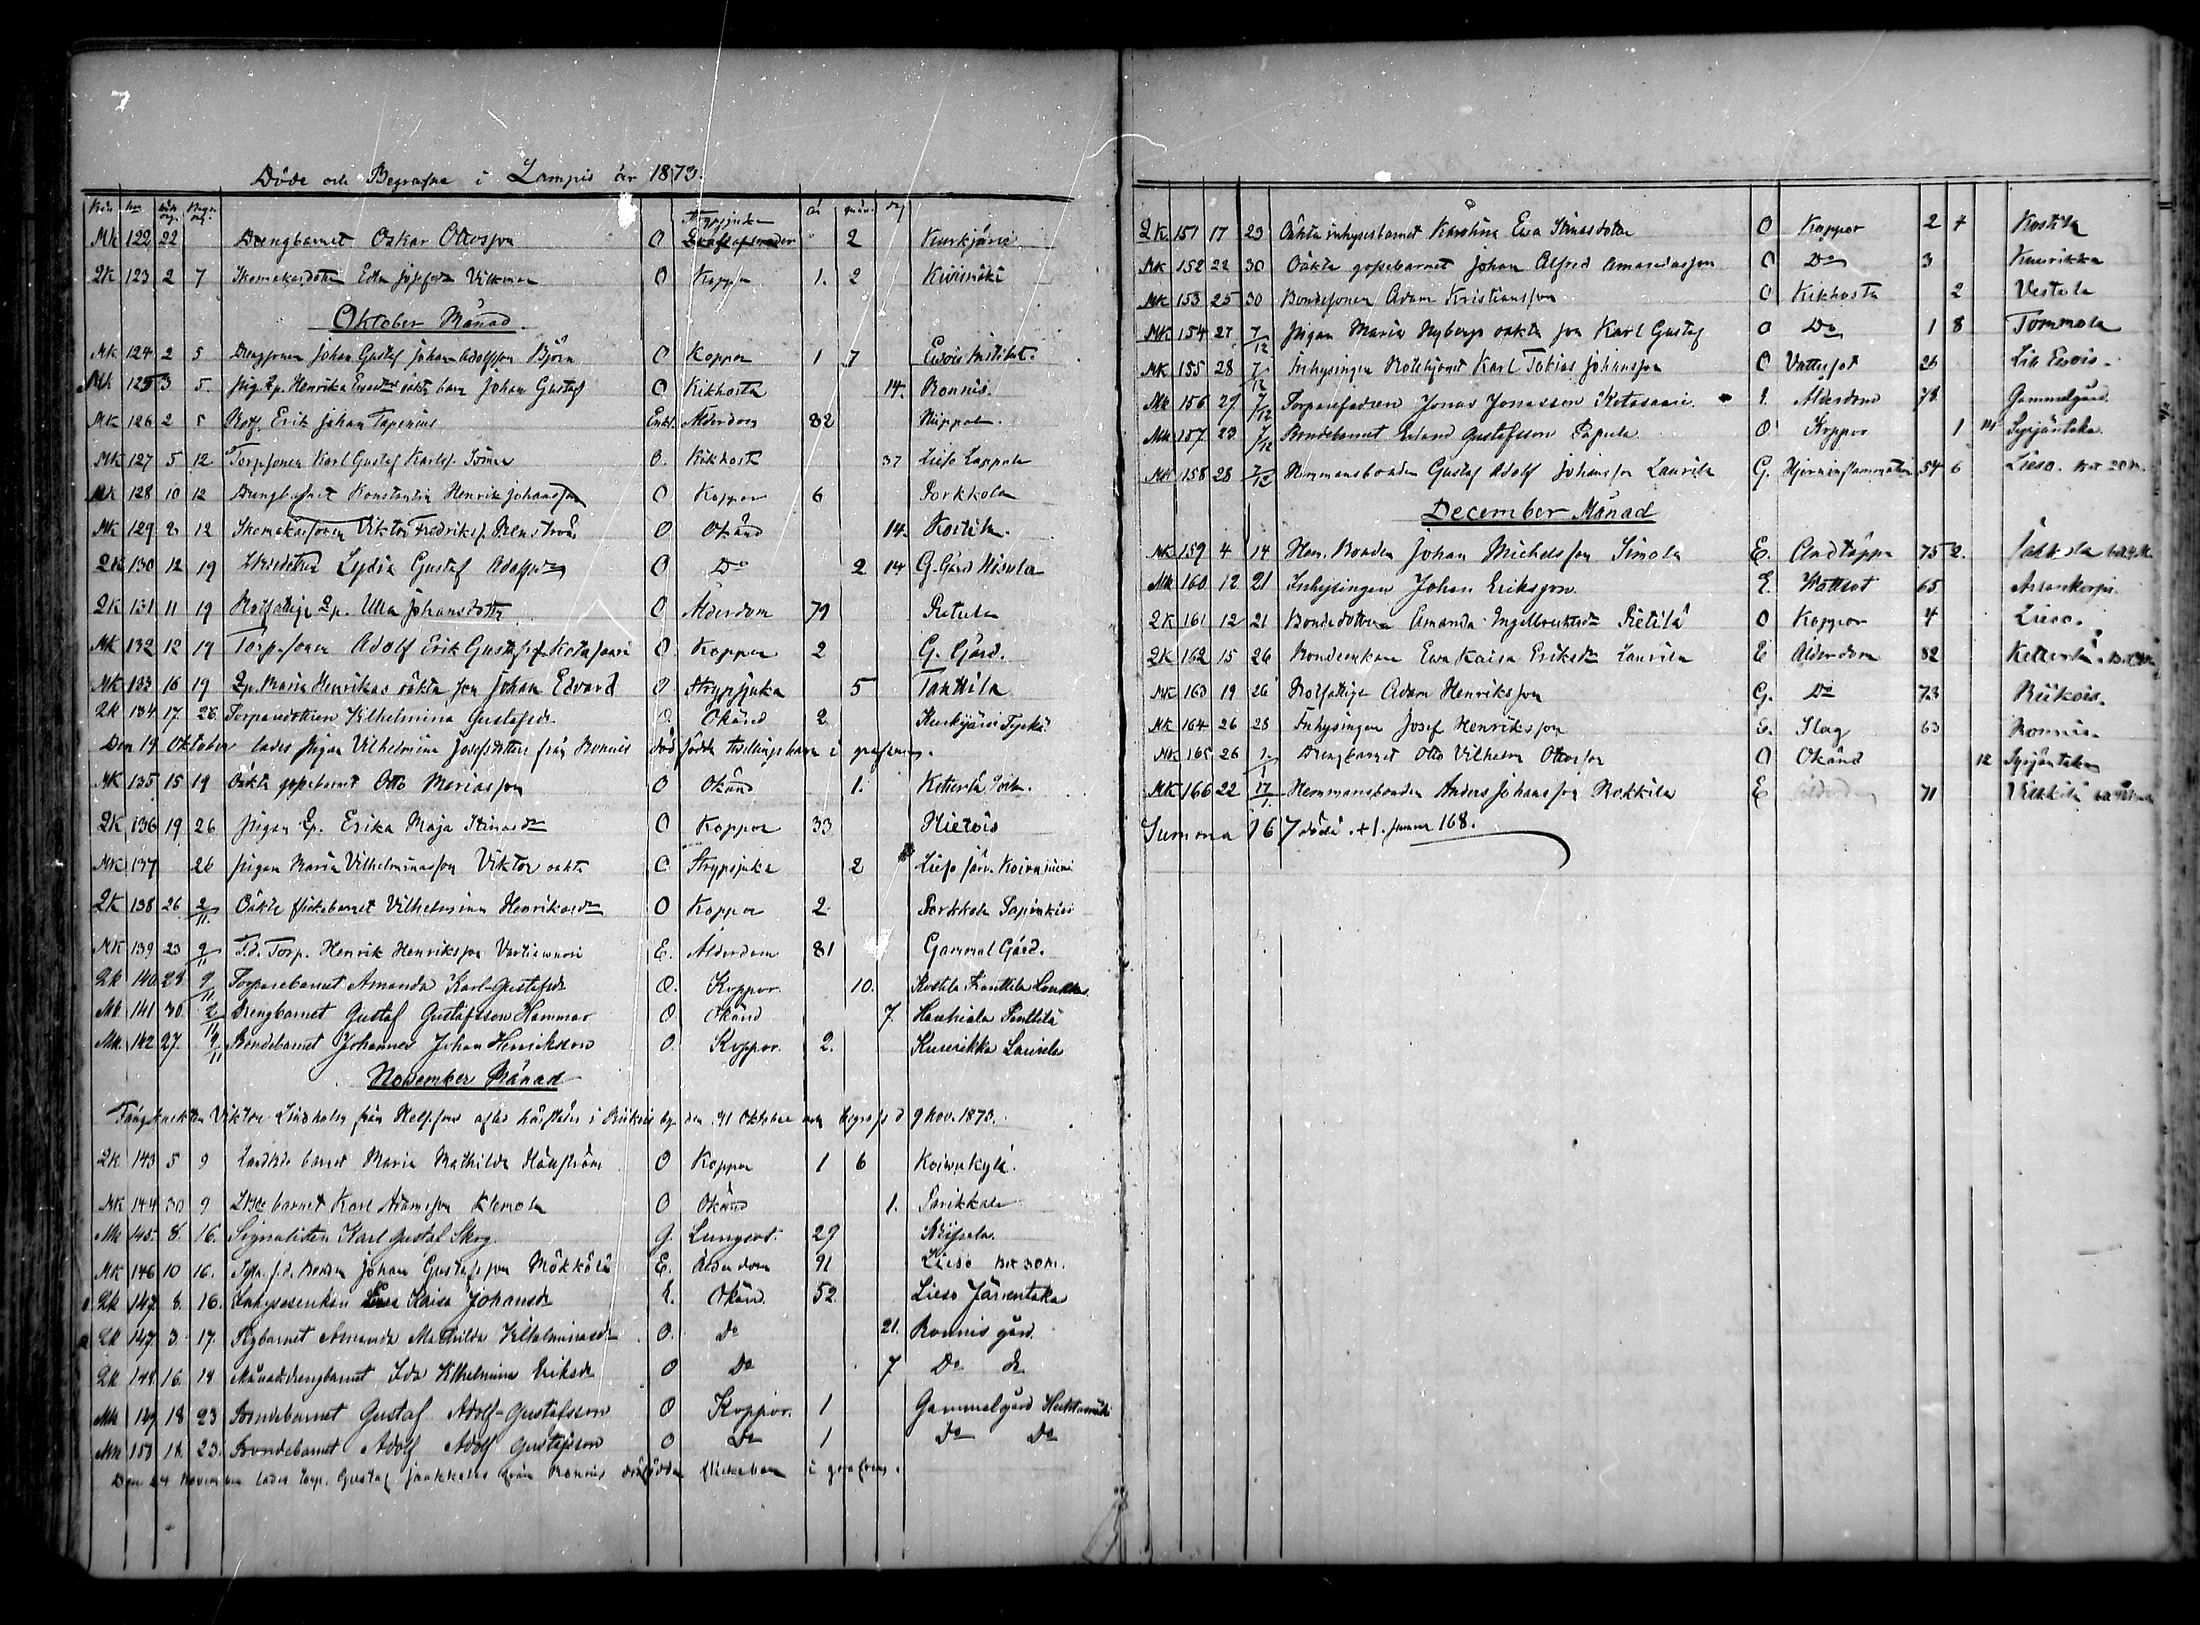 Döde och Begrafne i Lampis år 1873.
Kön No år mån. dag
Mk 122 22 Drengbarnet Oskar Ottosson O Strypsjuka 2 Kurkjärvi
Qk 123 2 7 Skomakardotter Edla Josefsdr Vikman O Koppor 1. 2 Kivismäki
Oktober Månad
Mk 124 2 5 Drengsonen Johan Gustaf Johan Adolfsson Björn O Koppor 1 7 Evois Institut.
Mk 125 3 5. Pig. Henrika oäkta barn Johan Gustaf O Kikhosta 14. Ronnis.
Mk 126 2 5 Erik Johan Tapenius Enkl. Ålderdom 82
Mk 127 5 12 Torpsonen Karl Gustaf Karlss. O. Kikhosta 37 Lieso Lappala
Mk 128 10 12 Drengbarnet Konstantin Henrik Johansson O Koppor 6 Porkkola
Mk 129 2 12 Skomakarsonen Viktor Fredrikss. O Okänd 14. Kostila.
Qk 130 12 19 Lydia Gustaf Adolfsdr O Do 2 14 G. Gård
Qk 131 11 19 Rotfattige Ulla Johansdotter O Ålderdom 79 Pietula
Mk 132 12 19 Torpsonen Adolf Erik Gustafss. Kotasaari O. Koppor 2 G. Gård.
Mk 133 16 19 Maria Henrikas oäkta son Johan Edvard O Strypsjuka 5 Tanttila
Qk 134 17. 26 Torparedottren Vilhelmina Gustafsdr. O. Okänd 2 Kurkijärvi
Den 19 Oktober lades pigan Vilhelmina Josefsdotters från Ronnis dödfödde tvillingebarn i grafven.
Mk 135 15 19 Oäkta gossebarnet Otto Mariasson O Okänd 1. Ketterlä
Qk 136 19 26 Pigan Erika Maja Stinasdr O Koppor 33 Hietois
Mk 137 26 Pigan Maria Vilhelminasson Viktor oäkta O Strypsjuka 2 Lieso
Qk 138 26 2/11. Oäkta flickebarnet Vilhelmina Henrikasdr O Koppor 2 Porkkola
Mk 139 23 9/11 F.d. Torp. Henrik Henriksson E. Ålderdom 81 Gammal Gård.
Qk 140 28 9/11 Torparebarnet Amanda Karl-Gustafsdr O. Koppor 10. Kostila Kanttila
Mk 141 30. 2/11 Drengbarnet Gustaf Gustafsson Hammar O Okänd 7. Hauhiala Penttilä
Mk 142 27. 9/11 Bondebarnet Johannes Johan Henriksson O. Koppor. 2. Kuurikka Laurila
November Månad
Fångknekten Viktor Lindholm från Helsfors afled häftades i Riikois by den 31 Oktober och begrofs d 9 Nov. 1873.
Qk 143 5 9 barnet Maria Mathilda O Koppor 1 6 Koivukylä.
Mk 144 30 9 barnet Karl Adamsson Klemola O Okänd 1. Parikkala
Mk 145. 8. 16. Signalisten Karl Gustaf Skog G. Lungsot. 29
Mk 146 10 16. f.d. Bonden Johan Gustafsson Mökkölä E. Ålderdom 91 Lieso
Qk 147 8. 16. Inhysesenkan Kaisa Johansdr E. Okänd 52 Lieso Järventaka
Qk 147. 3. 17. Amanda Mathilda Vilhelminasdr O. Do 21. Ronnis gård.
Qk 148. 16. 18 Månadsdrengbarnet Ida Vilhelmina Eriksdr O Do 7 Do Do
Mk 149 18 23 Bondebarnet Gustaf Adolf-Gustafsson O Koppor. 1 Gammelgård
Mk 150 18. 23. Bondebarnet Adolf Adolf Gustafsson O Do 1 Do Do
Den 24 November lades torp. Gustaf Jaakkolas från Ronnis dödfödda flickebarn i grafven.
Qk 151 17 23 Oäkta inhysesbarnet Karolina Eva Stinasdotter O Koppor 2 7 Kostila
Mk 152 22 30 Oäkta gossebarnet Johan Alfred Amandasson O Do 3 Kuurikka
Mk 153 25 30 Bondesonen Adam Kristiansson O Kikhosta 2 Vestola
Mk 154 27. 7/12 Pigan Maria Nybergs oäkta son Karl Gustaf O Do 1 8 Tommola
Mk 155 28 7/12 Inhysingen Rotehjonet Karl Tobias Johansson O Vattusot 26 Evois.
Mk 156 27 7/12 Torparefadren Jonas Jonasson Kotasaari. E. Ålderdom 78. Gammelgård.
Mk 157 23 7/12 Bondebarnet Erland Gustafsson Papula O Koppor 1 14 Syrjäntaka.
Mk 158 28 7/12 Hemmansbonden Gustaf Adolf Johansson Laurila G. Hjerninflammation 54 6 Lieso.
December Månad
Mk 159 4 14 Hem. Bonden Johan Michelsson Simola E. Andtäppa 75 2. Jahkola
Mk 160 12 21 Inhysingen Johan Eriksson. E. Vattsot 65. Arrankorpi.
Qk 161 12 21 Bondedottren Amanda Ingelbrektsdr Pietilä O Koppor 4 Lieso.
Qk 162 15 26 Bondeenkan Eva Kaisa Eriksdr Laurila E Ålderdom 82 Ketterlä
Mk 163 19 26 Rotfattige Adam Henriksson G. Do 73 Riikois.
Mk 164 26 28 Inhysingen Josef Henriksson E. Slag 63 Ronnis.
Mk 165 26 1/1 Drengbarnet Otto Vilhelm Ottosson O Okänd 12 Syrjäntaka
Mk 166 22 17/1. Hemmansbonden Anders Johansson Rokkila E Ålderdom 71
Summa 167 döda. +1. summa 168.